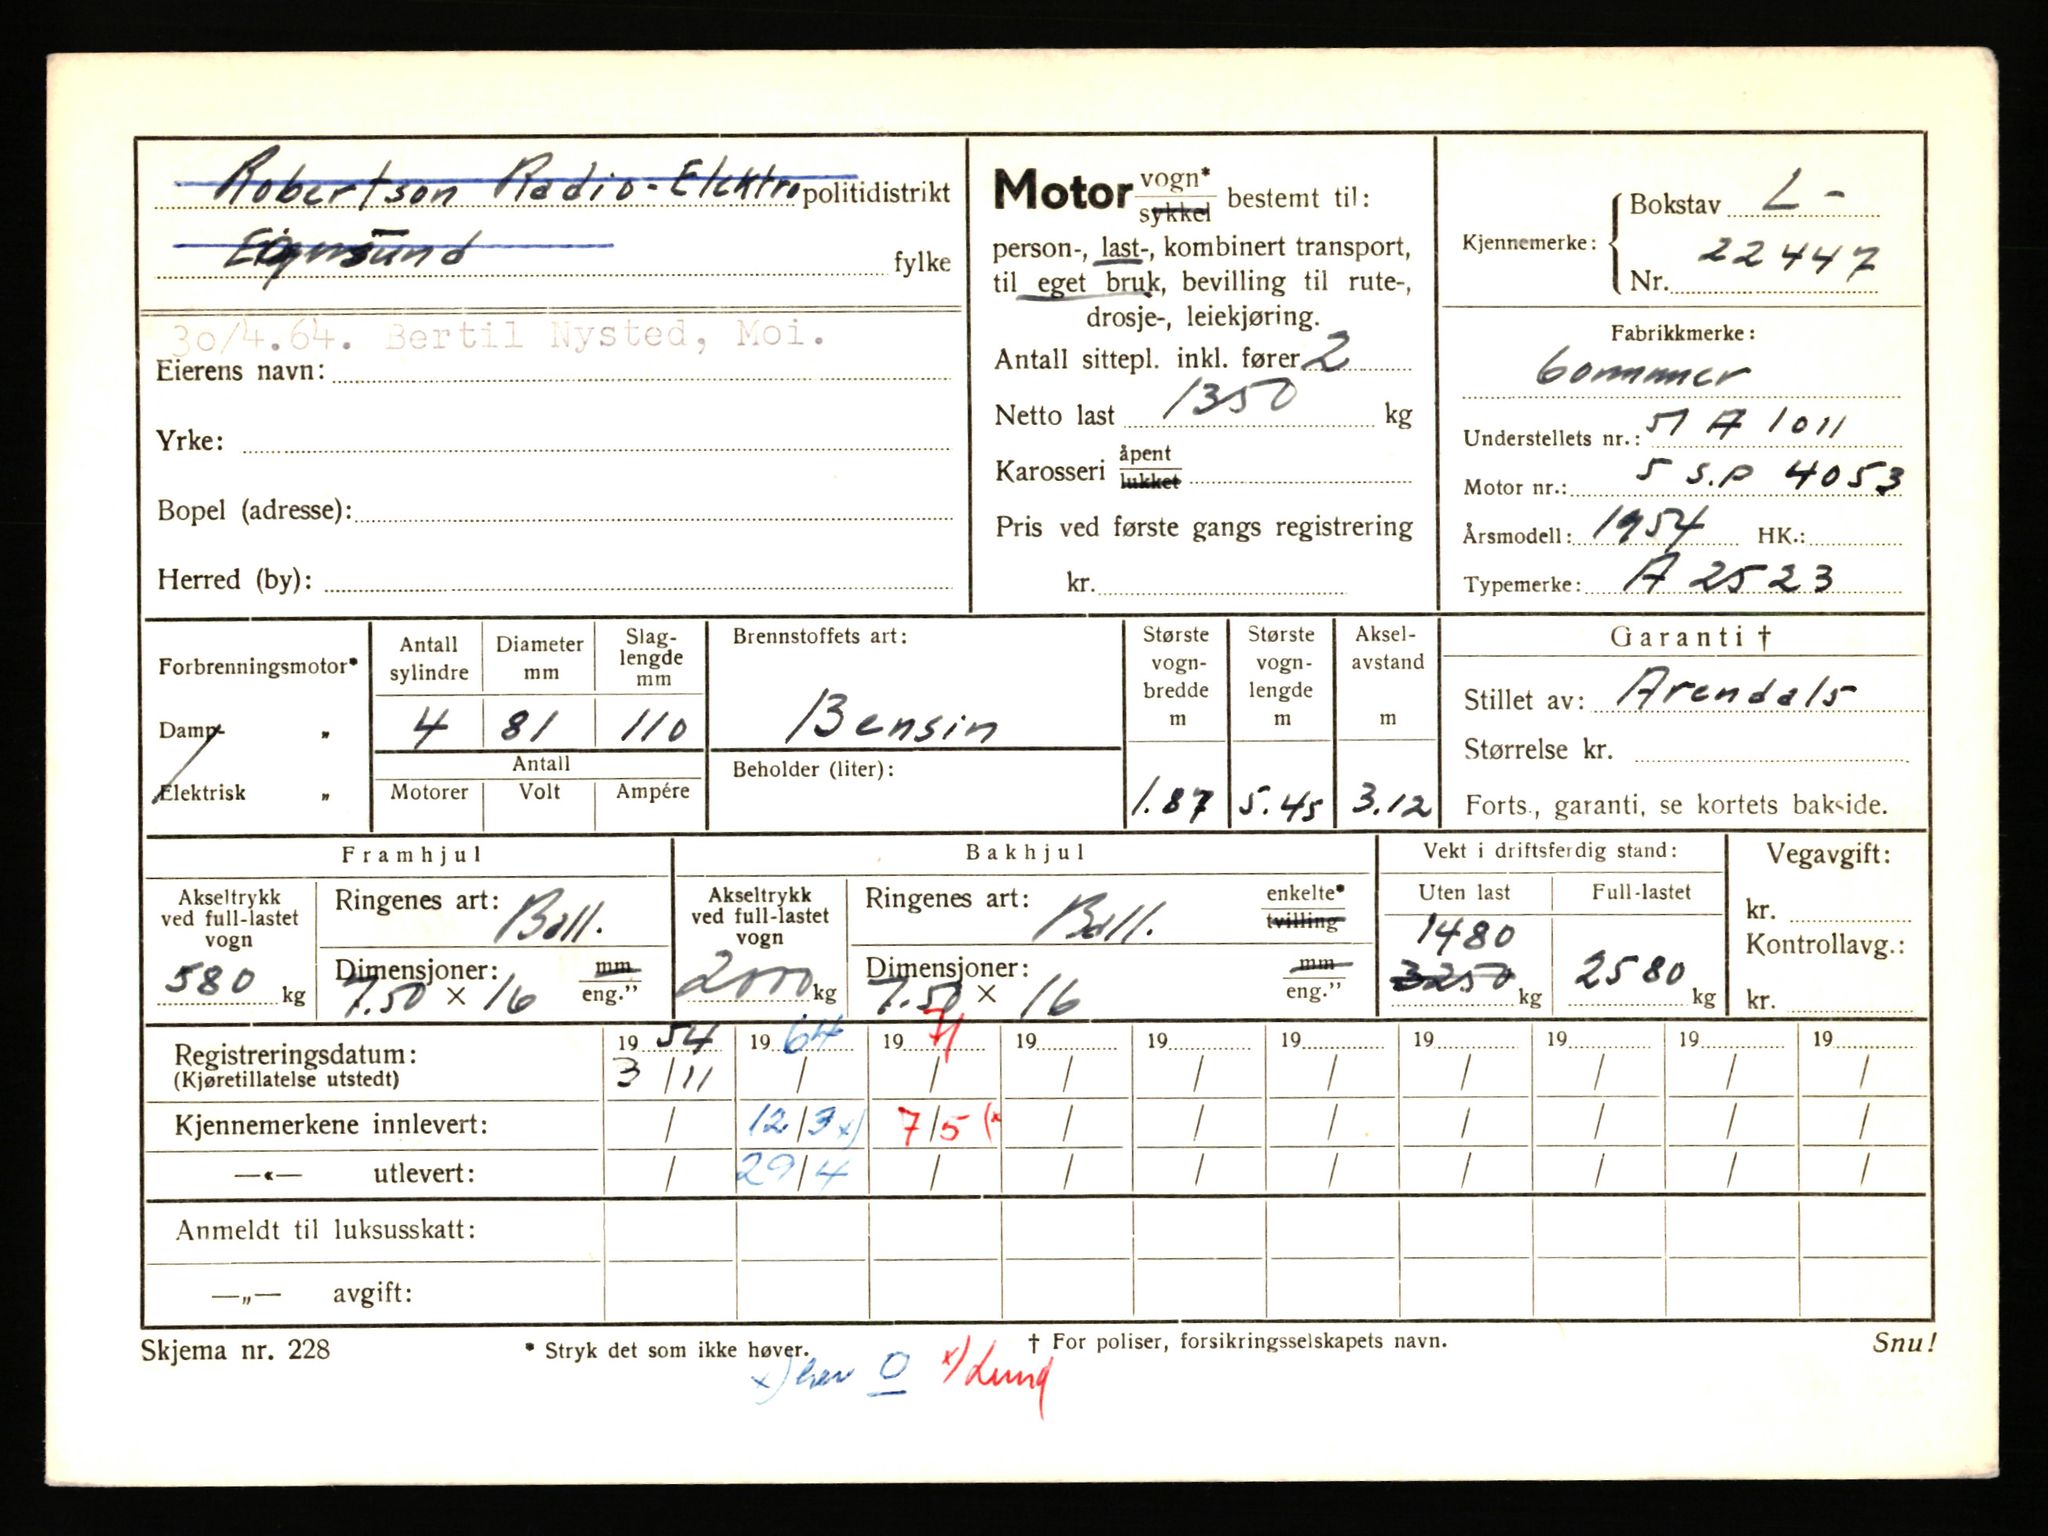 Robertson Radio-Elektro politidistrikt
Egersund fylke
30/4.64. Bertil Nysted, Moi.
Eierens navn:
Yrke:
Bopel (adresse):
Herred (by):
Motor vogn* sykkel bestemt til:
person-, last-, kombinert transport,
til eget bruk, bevilling til rute-,
drosje-, leiekjøring.
Antall sittepl. inkl. fører 2
Netto last 1350 kg
Karosseri åpent lukket
Pris ved første gangs registrering
kr.
Kjennemerke: Bokstav L-
Nr. 22447
Fabrikkmerke:
Commer
Understellets nr.: 51 A 1011
Motor nr.: 5 S.P 4053
Årsmodell: 1954 HK.:
Typemerke: A 2523
Forbrenningsmotor*
Damp- „
Elektrisk „
Antall sylindre
Diameter mm
Slag-lengde mm
4 81 110
Antall
Motorer Volt Ampére
Brennstoffets art:
Bensin
Beholder (liter):
Største vogn-bredde m
1.87
Største vogn-lengde m
5.45
Aksel-avstand m
3.12
Garanti †
Stillet av: Arendals
Størrelse kr.
Forts., garanti, se kortets bakside.
Framhjul
Akseltrykk ved full-lastet vogn
580 kg
Ringenes art: Ball.
Dimensjoner: mm
7.50 × 16 eng.”
Bakhjul
Akseltrykk ved full-lastet vogn
2000 kg
Ringenes art: Ball. enkelte* tvilling
Dimensjoner: mm
7.50 × 16 eng.”
Vekt i driftsferdig stand:
Uten last Full-lastet
1480
3250 kg 2580 kg
Vegavgift:
kr.
Kontrollavg.:
kr.
19 54 19 64 19 71 19 19 19 19 19 19 19
Registreringsdatum: 3/11 / / / / / / / / /
(Kjøretillatelse utstedt)
Kjennemerkene innlevert: / 12/3 x) 7/5 (x / / / / / / /
—«— utlevert: / 29/4 / / / / / / / /
Anmeldt til luksusskatt:
—„— avgift:
Skjema nr. 228 * Stryk det som ikke høver. † For poliser, forsikringsselskapets navn. Snu!
x) O x) Lund